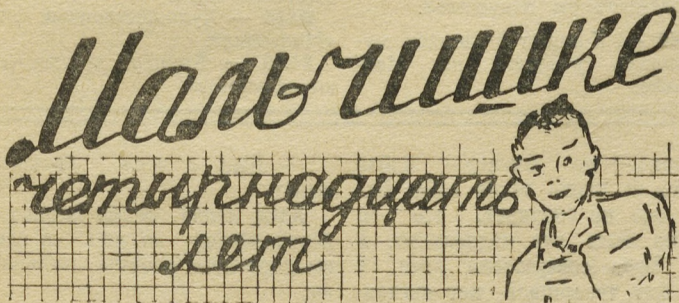 Мальчишке
четырнадцать
лет